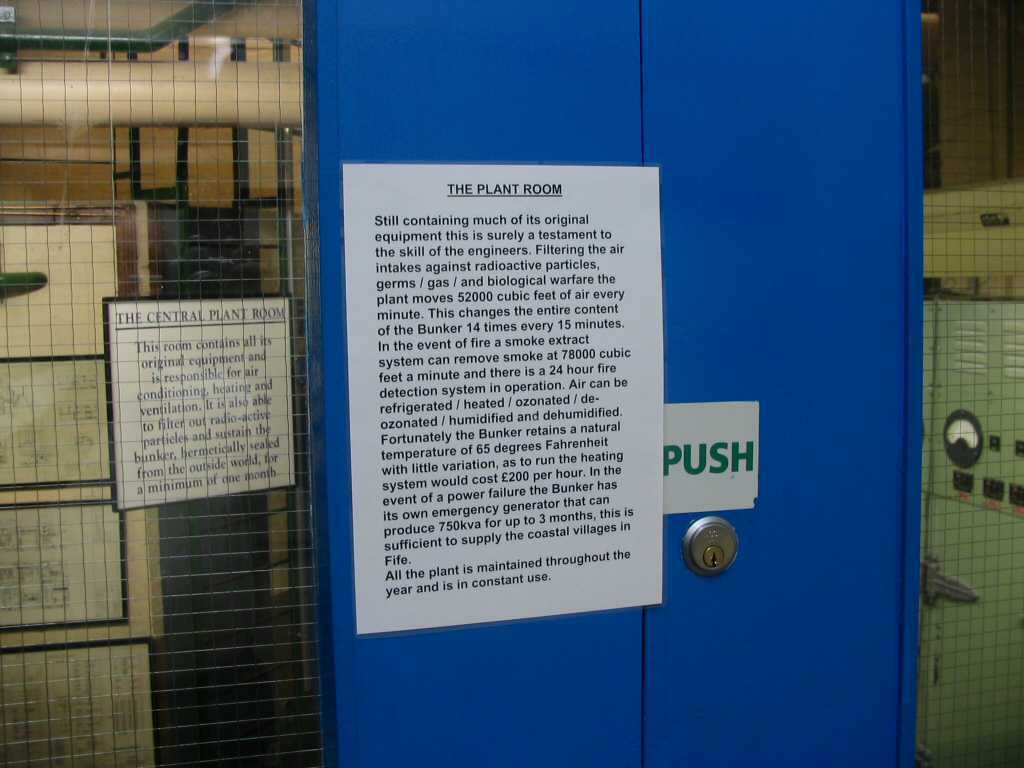 THE PLANT ROOM
Still containing much of its original
equipment this is surely a testament to
the skill of the engineers. Filtering the air
intakes against radioactive particles,
germs / gas / and biological warfare the
plant moves 52000 cubic feet of air every
minute. This changes the entire content
of the Bunker 14 times every 15 minutes.
In the event of fire a smoke extract
system can remove smoke at 78000 cubic
feet a minute and there is a 24 hour fire
detection system in operation. Air can be
refrigerated / heated / ozonated / de-
ozonated / humidified and dehumidified.
Fortunately the Bunker retains a natural
temperature of 65 degrees Fahrenheit
with little variation, as to run the heating
system would cost £200 per hour. In the
event of a power failure the Bunker has
its own emergency generator that can
produce 750kva for up to 3 months, this is
sufficient to supply the coastal villages in
Fife.
All the plant is maintained throughout the
year and is in constant use.
THE CENTRAL PLANT ROOM
This room contains all its
original equipment and
is responsible for air
conditioning, heating and
ventilation. It is also able
to filter out radio-active
particles and sustain the
bunker, hermetically sealed
from the outside world, for
a minimum of one month
PUSH